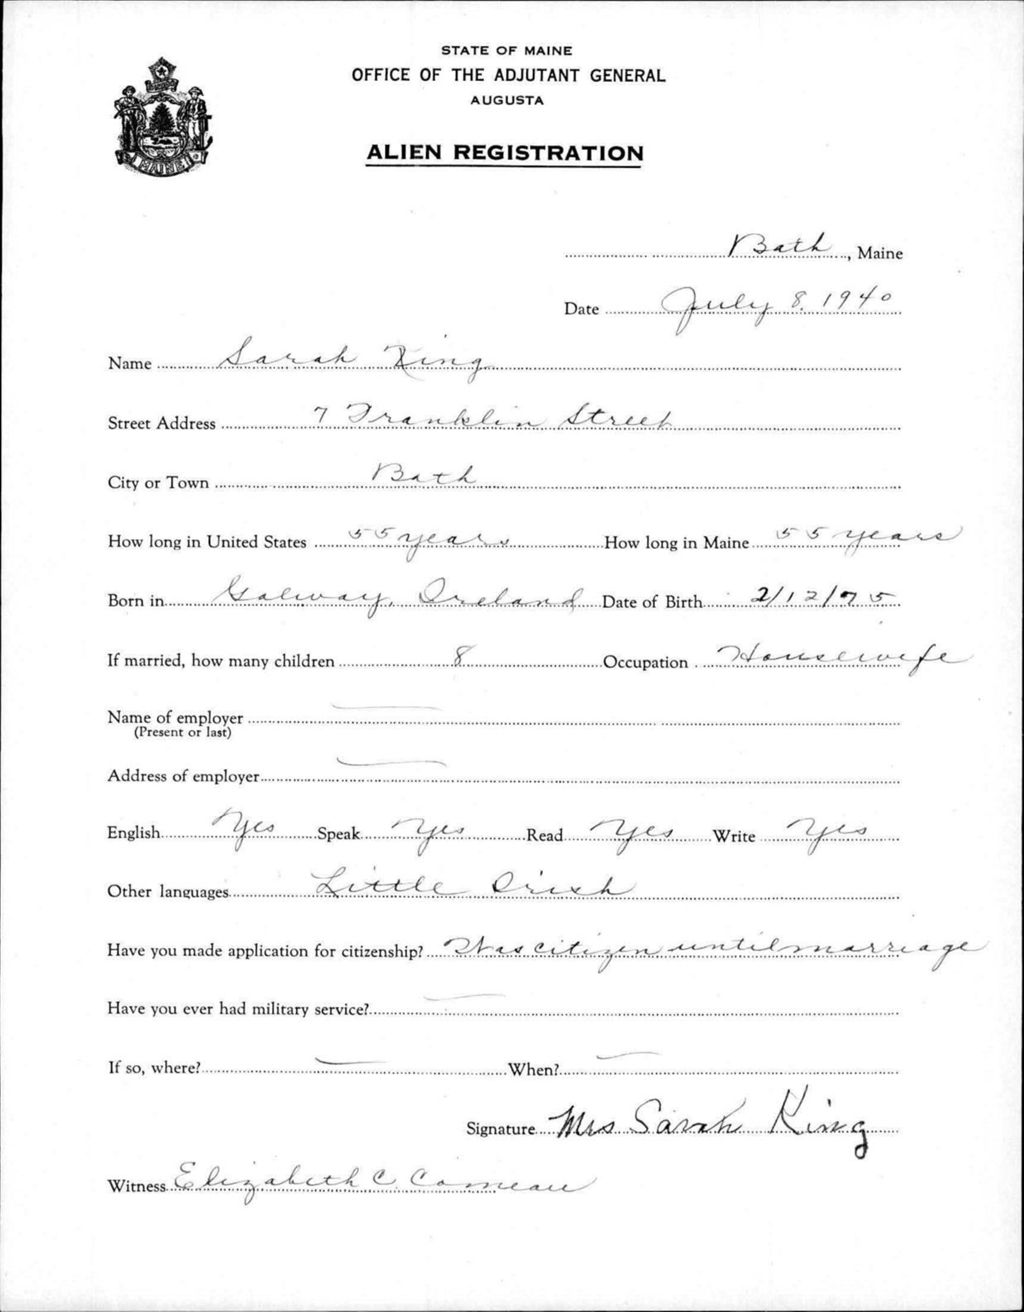 STATE OF MAINE
OFFICE OF THE ADJUTANT GENERAL
AUGUSTA
ALIEN REGISTRATION
MAINE
Bath, Maine
Date July 8. 1940
Name Sarah King
Street Address 7 Franklin Street
City or Town Bath
How long in United States 55 years How long in Maine 55 years
Born in Galway, Ireland Date of Birth 2/12/75
If married, how many children 8 Occupation Housewife
Name of employer —
(Present or last)
Address of employer —
English Yes Speak Yes Read Yes Write Yes
Other languages Little Irish
Have you made application for citizenship? Was citizen until marriage
Have you ever had military service? —
If so, where? — When? —
Signature Mrs Sarah King
Witness Elizabeth C. Comeau